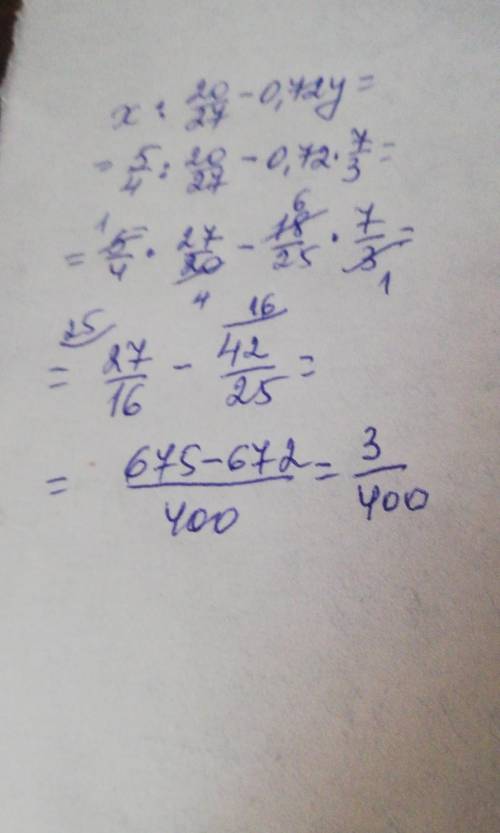 x : 20/27 - 0,72y =
= 5/4 : 20/27 - 0,72 · 7/3 =
= 5/4 · 27/20 - 18/25 · 7/3 =
1 4 6 1
25 16
= 27/16 - 42/25 =
= 675-672/400 = 3/400